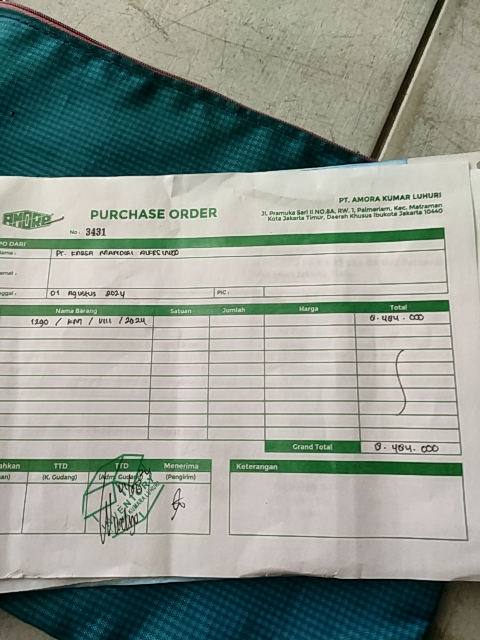 AMORA
PURCHASE ORDER
No : 3431
PT. AMORA KUMAR LUHURI
Jl. Pramuka Sari II NO.8A, RW. 1, Palmeriam, Kec. Matraman
Kota Jakarta Timur, Daerah Khusus Ibukota Jakarta 10440
PO DARI
ame :
PT. MANDIRI
amat :
ggal :
01 Agustus 2024
PIC :
Nama Barang
Satuan
Jumlah
Harga
Total
1290 / KM / VIII / 2024
484.000
Grand Total
484.000
ahkan
TTD
(K. Gudang)
TTD
(Adm Gudang)
Menerima
(Pengirim)
Keterangan